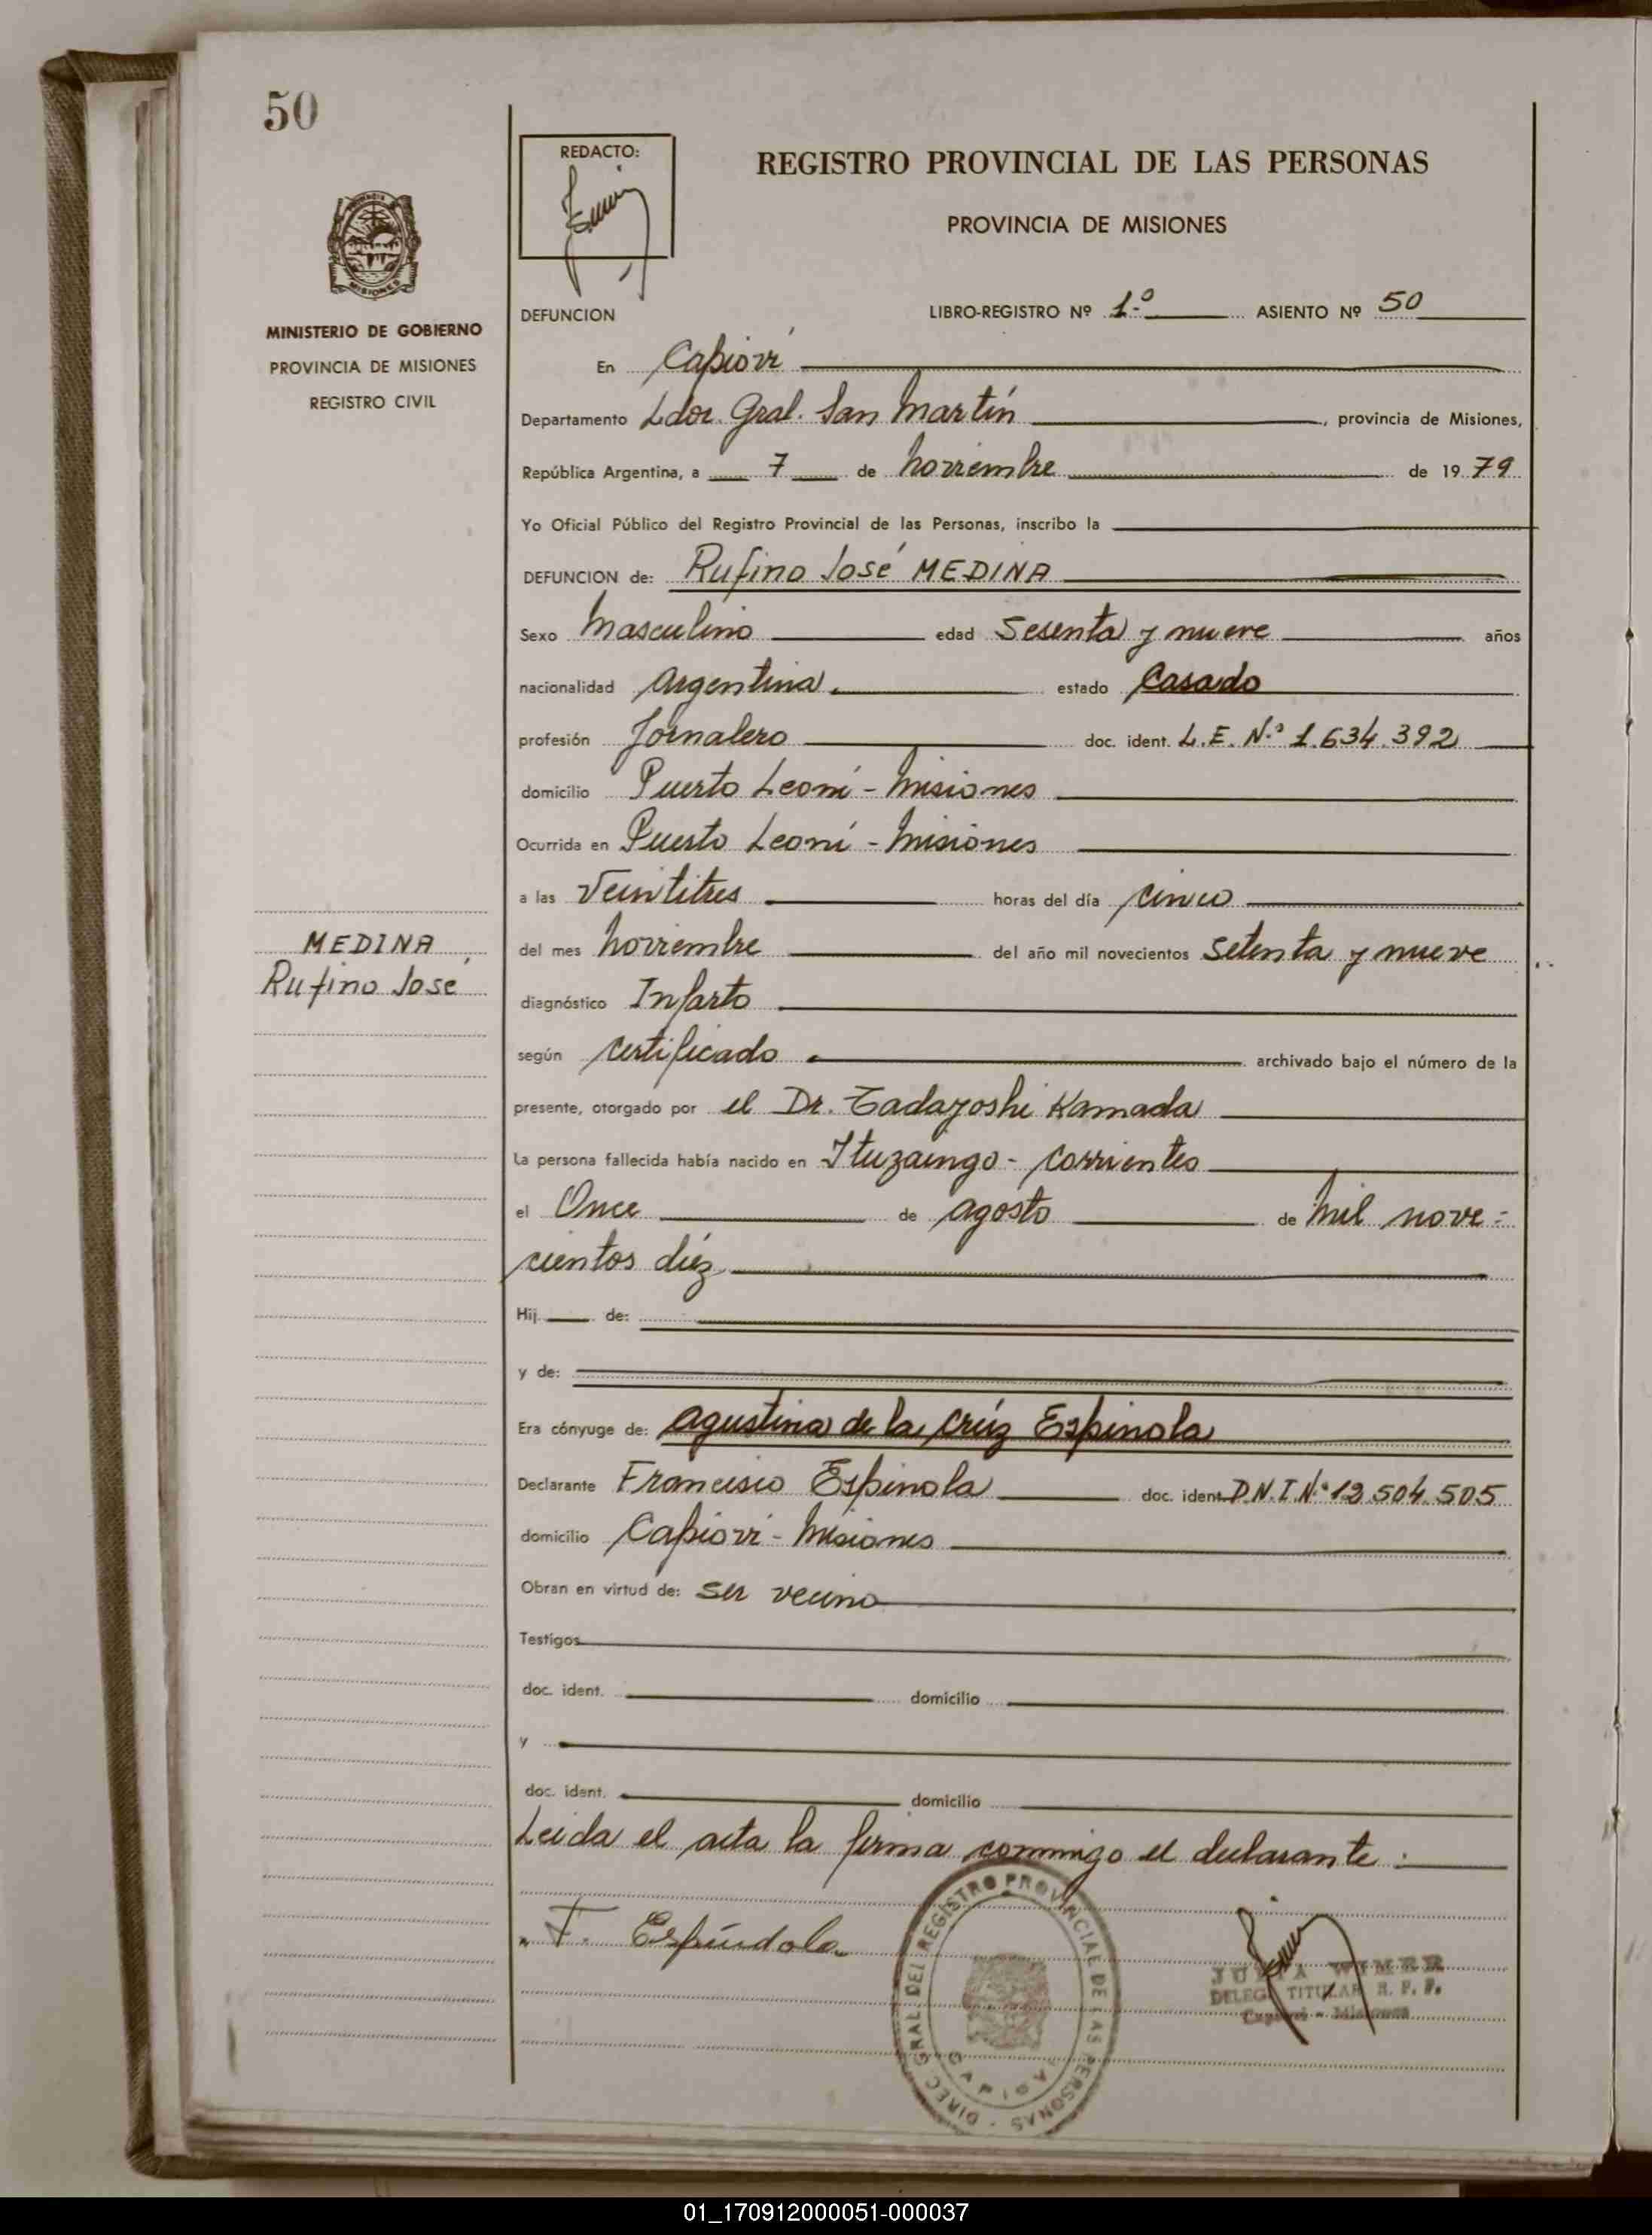 50
REDACTO:
REGISTRO PROVINCIAL DE LAS PERSONAS
PROVINCIA DE MISIONES
MISIONES
MINISTERIO DE GOBIERNO
PROVINCIA DE MISIONES
REGISTRO CIVIL
DEFUNCION LIBRO-REGISTRO Nº 1º ASIENTO Nº 50
En Capioví
Departamento Ldor. Gral. San Martín, provincia de Misiones,
República Argentina, a 7 de noviembre de 1979
Yo Oficial Público del Registro Provincial de las Personas, inscribo la
DEFUNCION de: Rufino José MEDINA
Sexo masculino edad Sesenta y nueve años
nacionalidad Argentina. estado Casado
profesión Jornalero doc. ident. L.E. N.º 1.634.392
domicilio Puerto Leoní - Misiones
Ocurrida en Puerto Leoní - Misiones
a las Veintitres horas del día cinco
MEDINA
Rufino José
del mes noviembre del año mil novecientos setenta y nueve
diagnóstico Infarto
según certificado archivado bajo el número de la
presente, otorgado por el Dr. Tadayoshi Kamada
La persona fallecida había nacido en Ituzaingo - Corrientes
el Once de agosto de mil nove-
cientos diéz
Hij de:
y de:
Era cónyuge de: Agustina de la Crúz Espinola
Declarante Francisco Espinola doc. ident. D.N.I.N.º 12.504.505
domicilio Capioví - Misiones
Obran en virtud de: ser vecino
Testigos
doc. ident. domicilio
y
doc. ident. domicilio
Leida el acta la firma conmigo el declarante.
F. Espíndola
DIREC. GRAL. DEL REGISTRO PROVINCIAL DE LAS PERSONAS
CAPIOVI
WIMER
DELEG. TITULAR R. P. P.
Capioví - Misiones
01_170912000051-000037